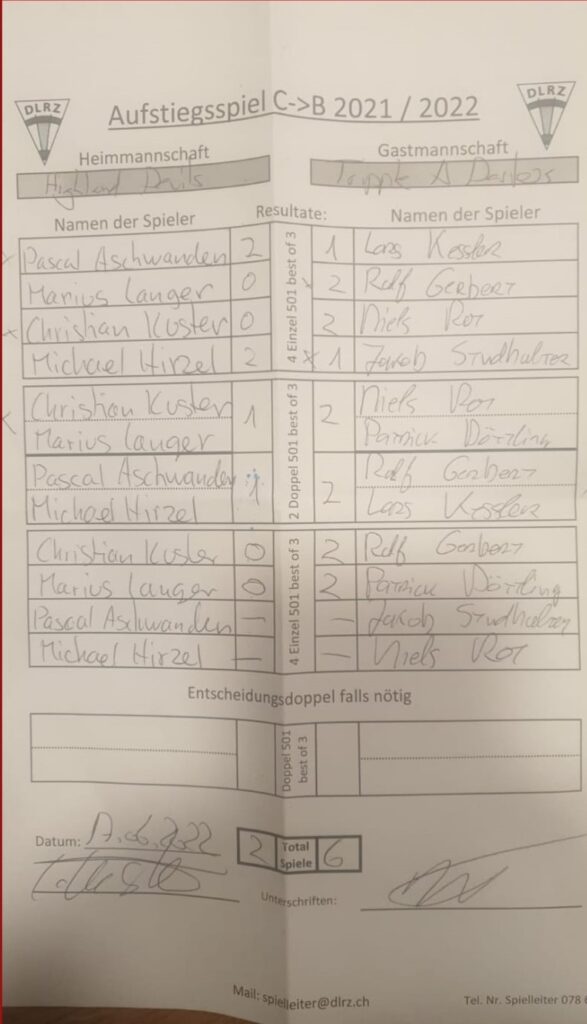 DLRZ
DLRZ
Aufstiegsspiel C->B 2021 / 2022
Heimmannschaft
Gastmannschaft
Highland Devils
A
Namen der Spieler
Resultate:
Namen der Spieler
4 Einzel 501 best of 3
Pascal Aschwanden 2 1 Lars Kessler
Marius Langer 0 2 Ralf Gerbert
x Christian Kuster 0 2 Niels Rot
Michael Hirzel 2 x 1 Jakob Studhalter
2 Doppel 501 best of 3
Christian Kuster 1 2 Niels Rot
Marius Langer Patrick Dörtling
Pascal Aschwanden 1 2 Ralf Gerbert
Michael Hirzel Lars Kessler
4 Einzel 501 best of 3
Christian Kuster 0 2 Ralf Gerbert
Marius Langer 0 2 Patrick Dörtling
Pascal Aschwanden – – Jakob Studhalter
Michael Hirzel – – Niels Rot
Entscheidungsdoppel falls nötig
Doppel 501
best of 3
Datum: 17.06.2022
2 Total Spiele 6
Unterschriften:
Mail: spielleiter@dlrz.ch
Tel. Nr. Spielleiter 078